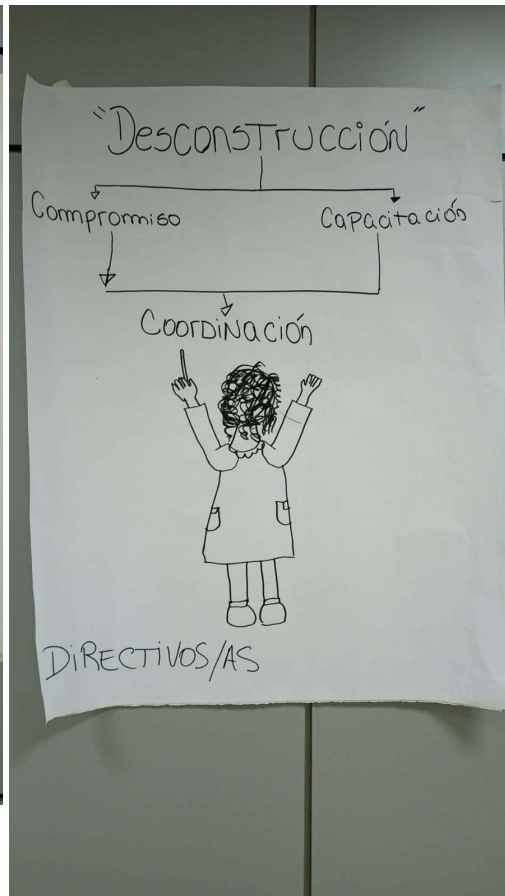 "DesconsTrucción"
Compromiso
Capacitación
CoordiNación
DiRECTiVOS/AS